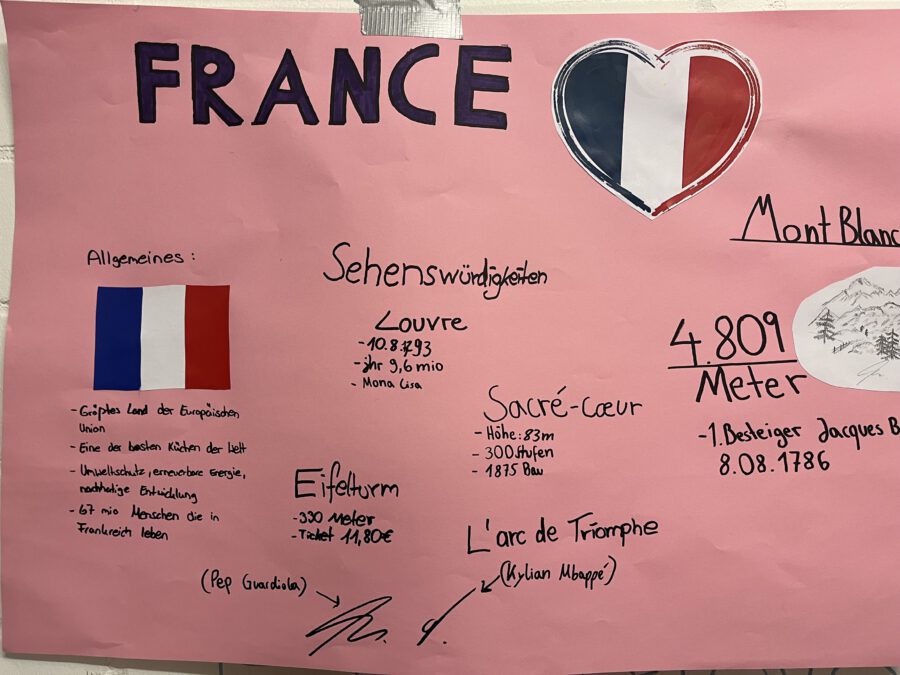 FRANCE
Mont Blanc
Allgemeines:
Sehenswürdigkeiten
Louvre
- 10.8.1793
- jhr 9,6 mio
- Mona Lisa
4.809
Meter
- 1. Besteiger Jacques B
8.08.1786
- Größtes Land der Europäischen
Union
- Eine der besten Küchen der Welt
- Umweltschutz, erneuerbare Energie,
nachhaltige Entwicklung
- 67 mio Menschen die in
Frankreich leben
Sacré-Cœur
- Höhe: 83m
- 300 Stufen
- 1875 Bau
Eifelturm
- 330 Meter
- Ticket 11,80€
L'arc de Triomphe
(Pep Guardiola)
(Kylian Mbappé)